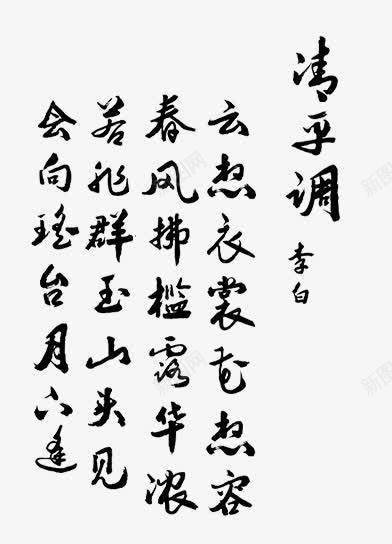 清平调
李白
云想衣裳花想容
春风拂槛露华浓
若非群玉山头见
会向瑶台月下逢